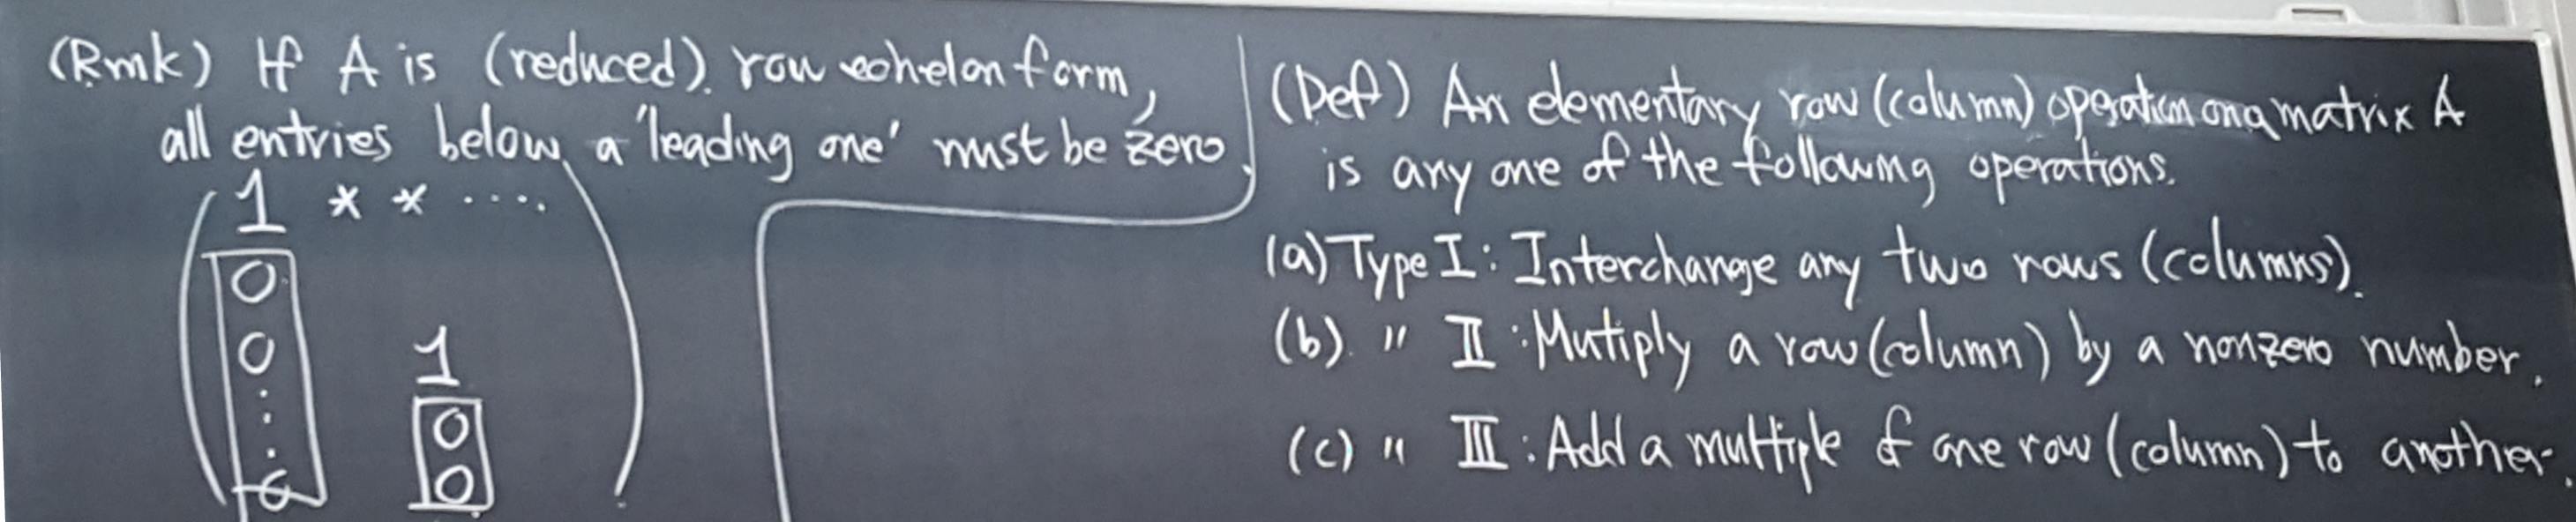 (Rmk) If A is (reduced). row echelon form,
all entries below a 'leading one' must be zero.
1 * * ....
0
0 1
: 0
0 0
(Def) An elementary row (column) operation on a matrix A
is any one of the following operations.
(a) Type I : Interchange any two rows (columns).
(b). " II : Mutiply a row (column) by a nonzero number.
(c) " III : Add a multiple of one row (column) to another.